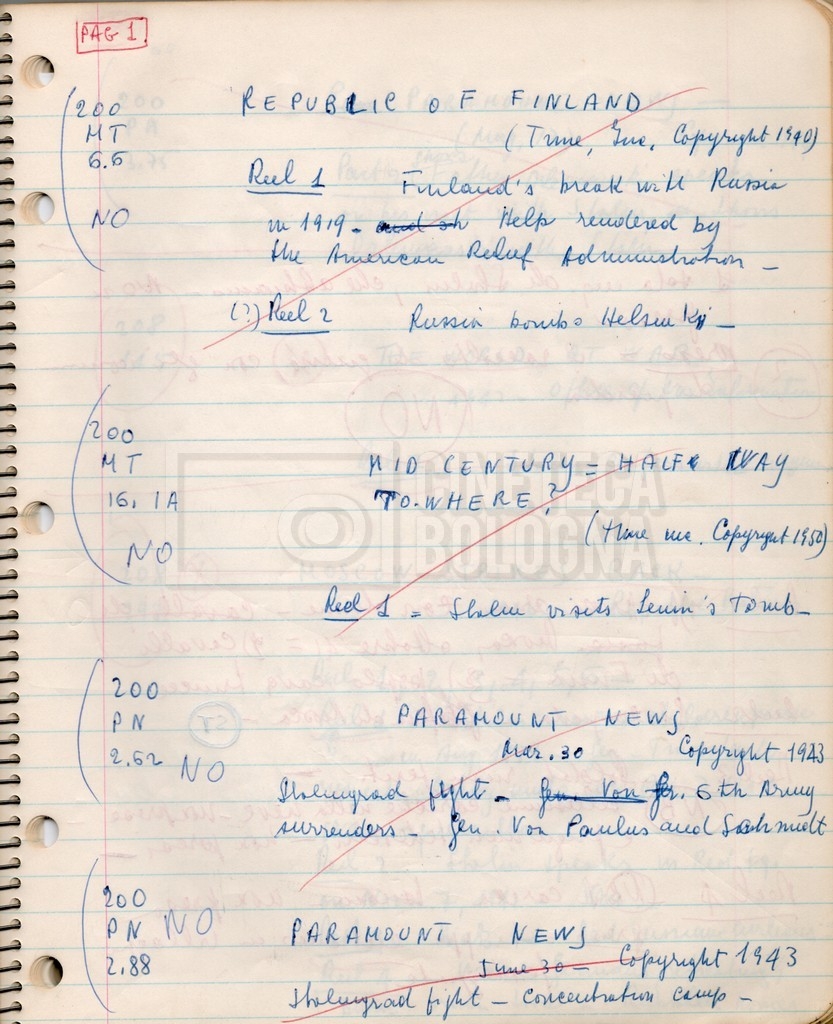 PAG 1
200
MT
6.6
NO
REPUBLIC OF FINLAND
(Time, Inc, Copyright 1940)
Reel 1 Finland's break with Russia
in 1919 - Help rendered by
the American Relief Administration -
(?) Reel 2 Russia bombs Helsinki -
200
MT
16.1A
NO
MID CENTURY = HALF WAY
TO WHERE?
(Time inc. Copyright 1950)
CINETECA
BOLOGNA
Reel 1 = Stalin visits Lenin's Tomb -
200
PN
2.62 NO
PARAMOUNT NEWS
Mar. 30 Copyright 1943
Stalingrad fight - Gen. Von Ger. 6th Army
surrenders - Gen. Von Paulus and Schmidt
200
PN NO
2.88
PARAMOUNT NEWS
June 30 - Copyright 1943
Stalingrad fight - concentration camp -